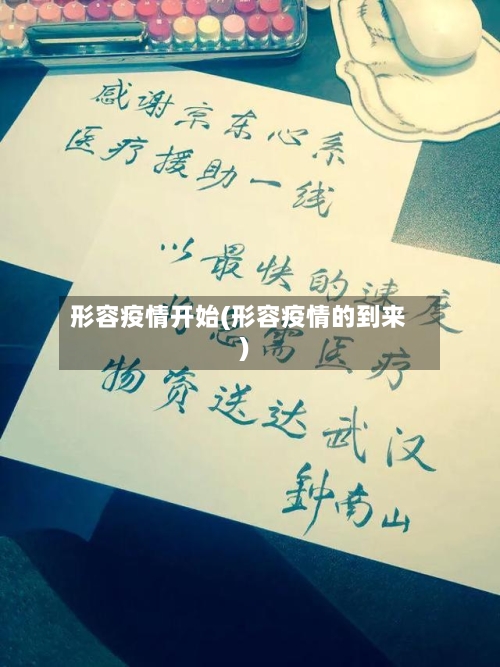 感谢京东心系
医疗援助一线
以最快的速度
急需医疗
物资送达武汉
钟南山
形容疫情开始(形容疫情的到来
)